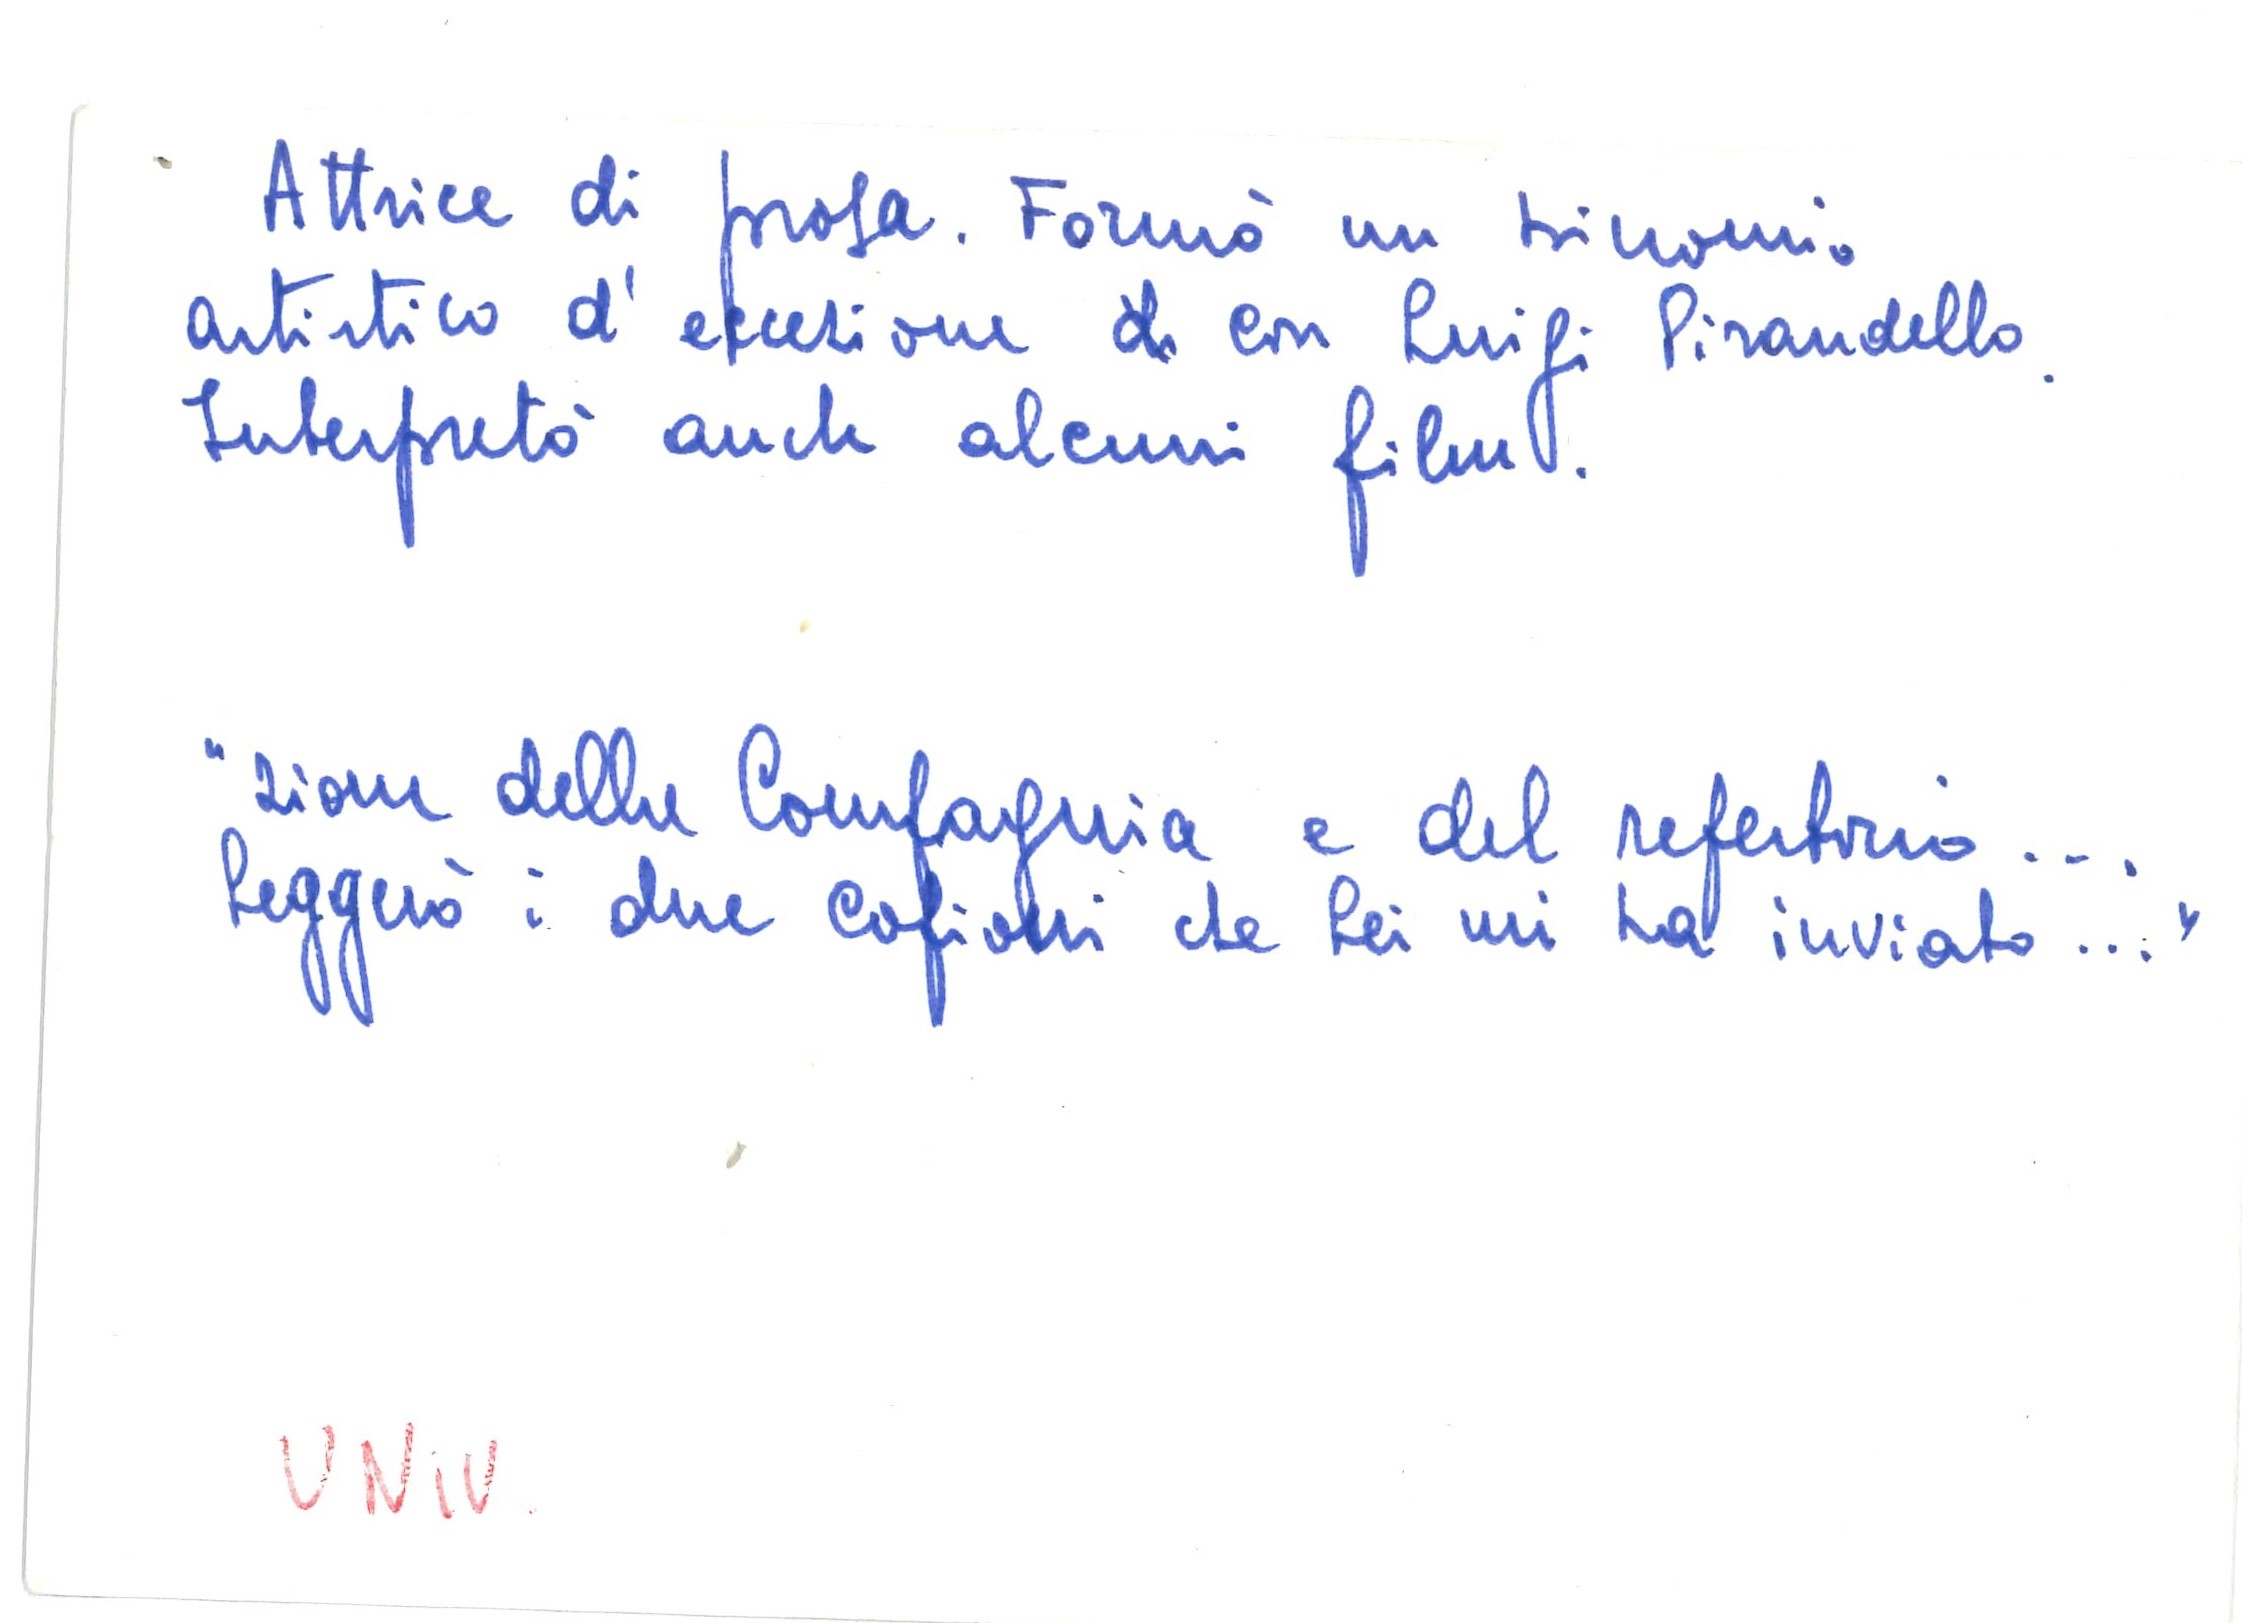 Attrice di prosa. Formò un trinomio
artistico d'eccezione con Luigi Pirandello.
Interpretò anche alcuni film.
"zione della Compagnia e del repertorio...
Leggerò i due copioni che Lei mi ha inviato..."
UNIV.